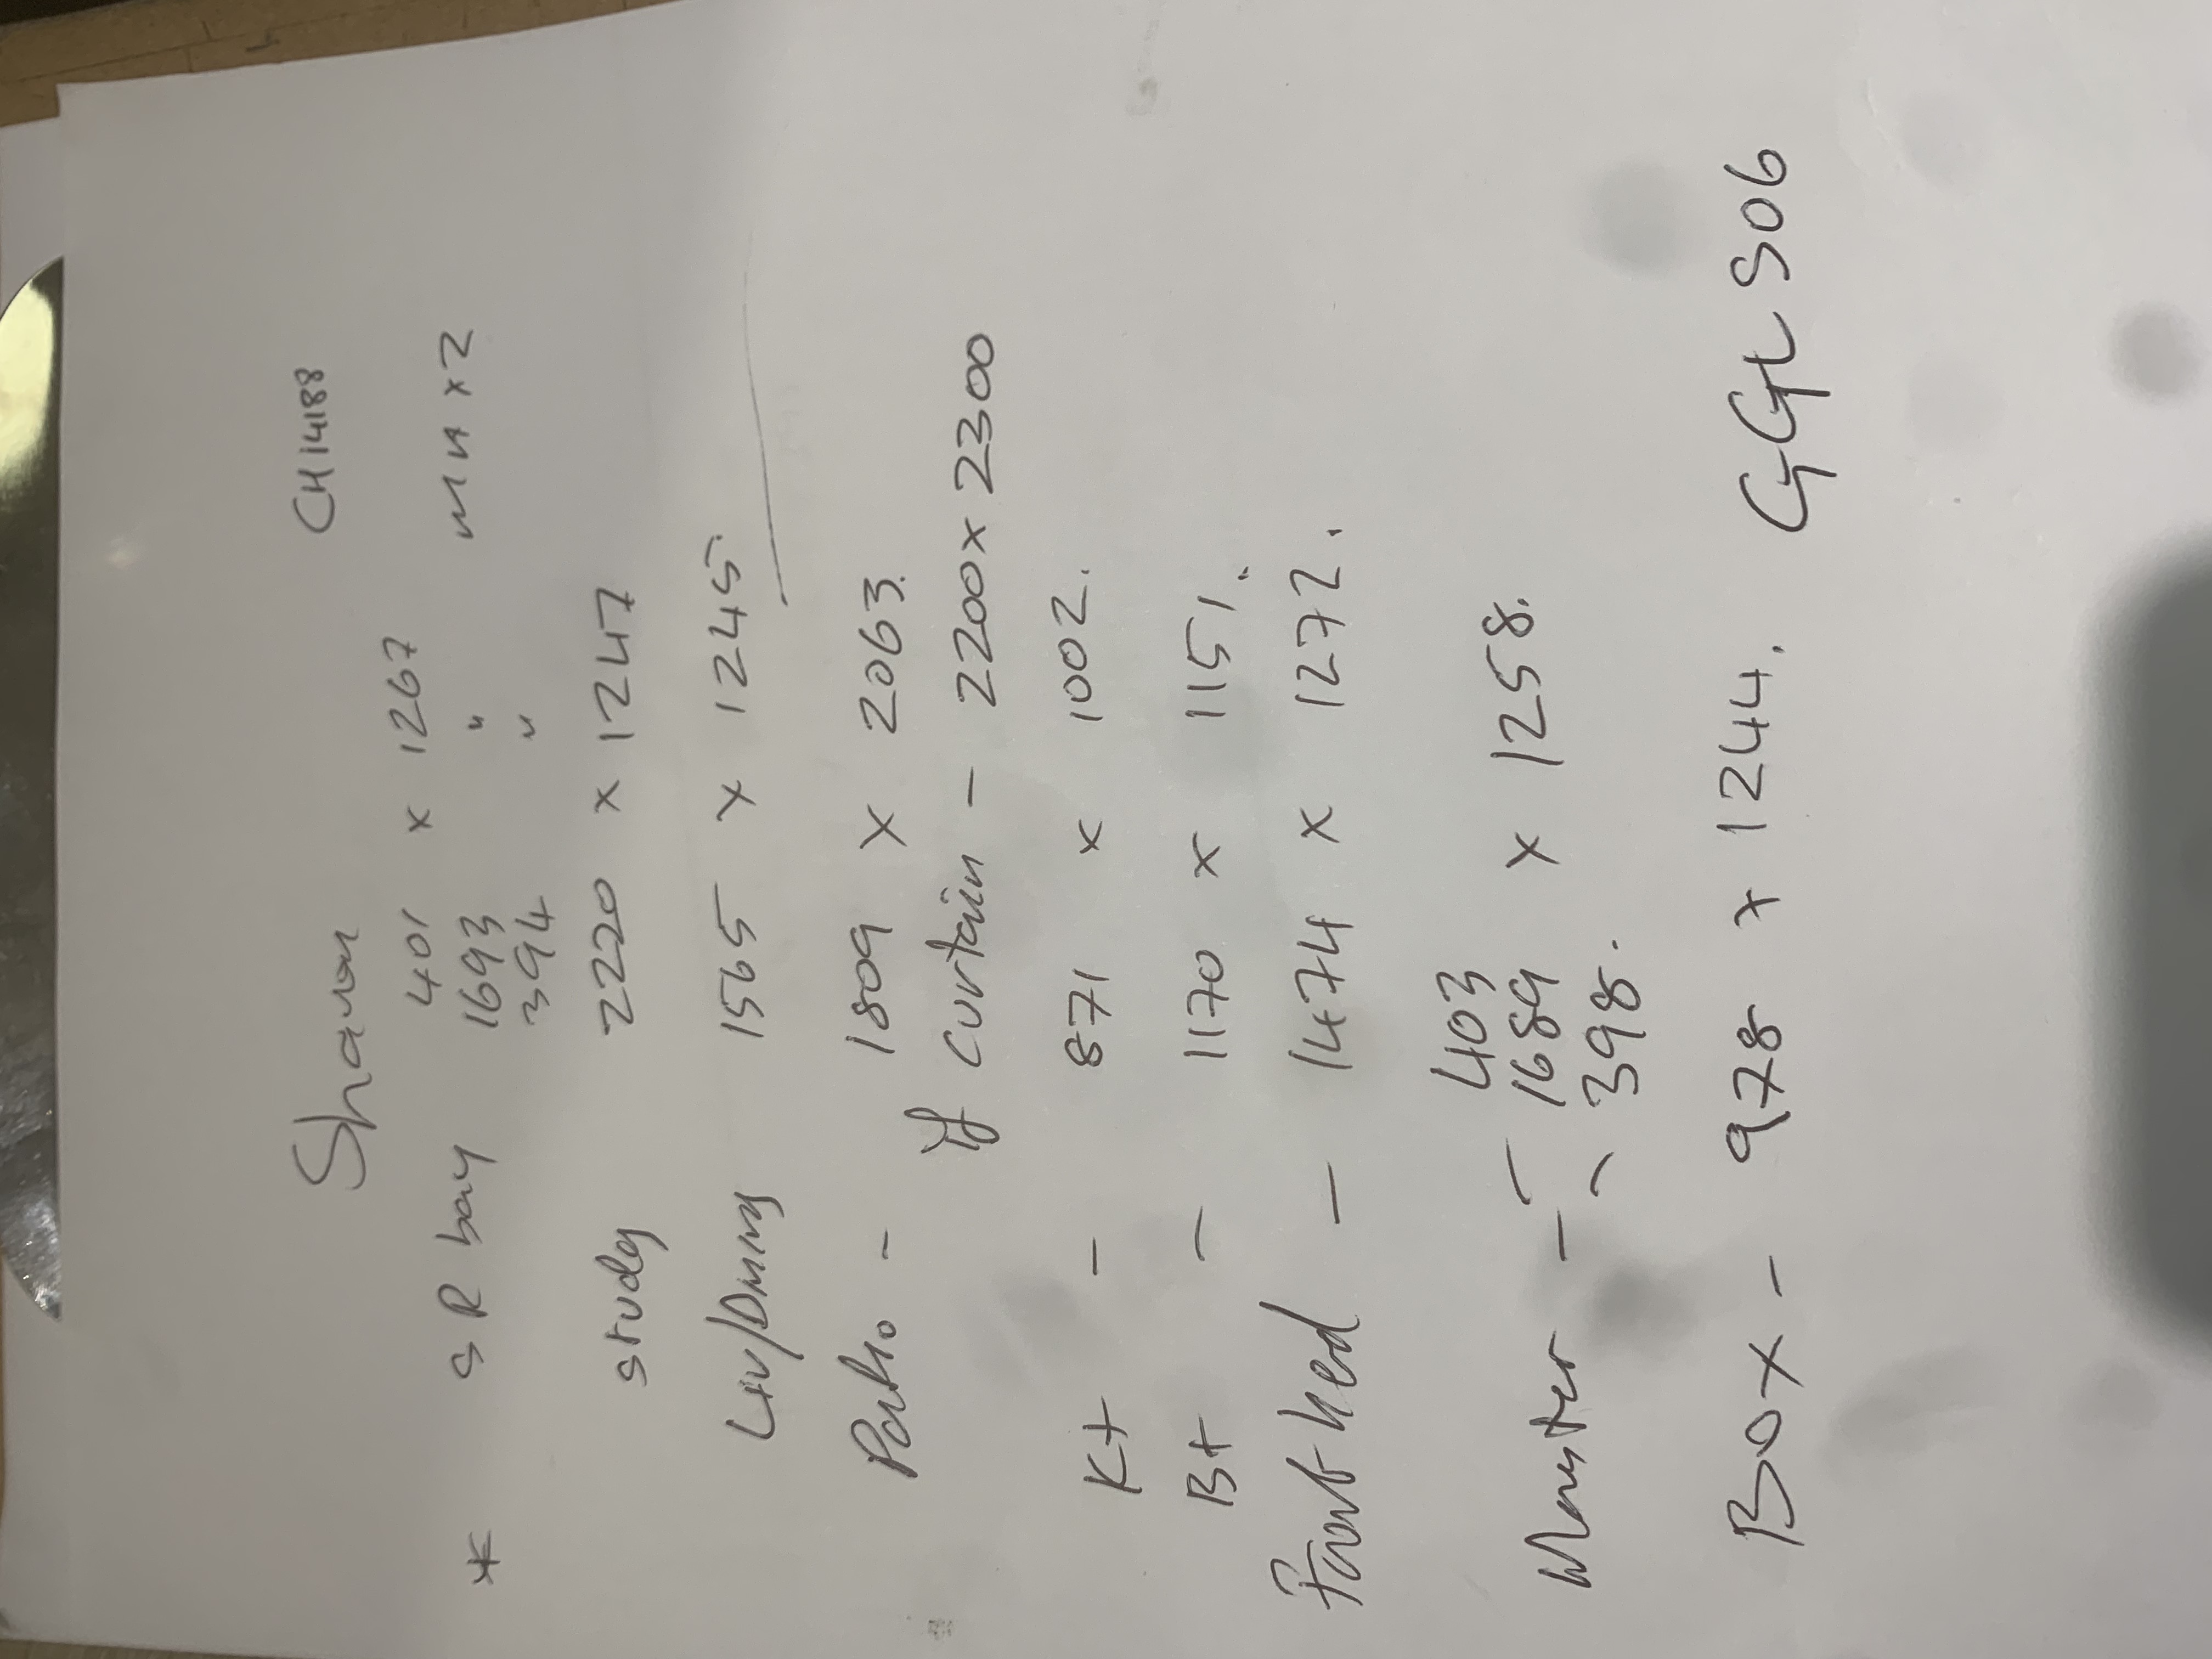 Sharon CH14188
401 x 1267
* S R bay 1693 " x2
394 "
study 2220 x 1247
Liv/Dining 1565 x 1245.
Patio - 1809 x 2063.
if curtain - 2200 x 2300
Kt - 871 x 1002.
Bt - 1170 x 1151.
- 1474 x 1272.
403
Master - 1689 x 1258.
398.
Box - 978 x 1244. GGL S06